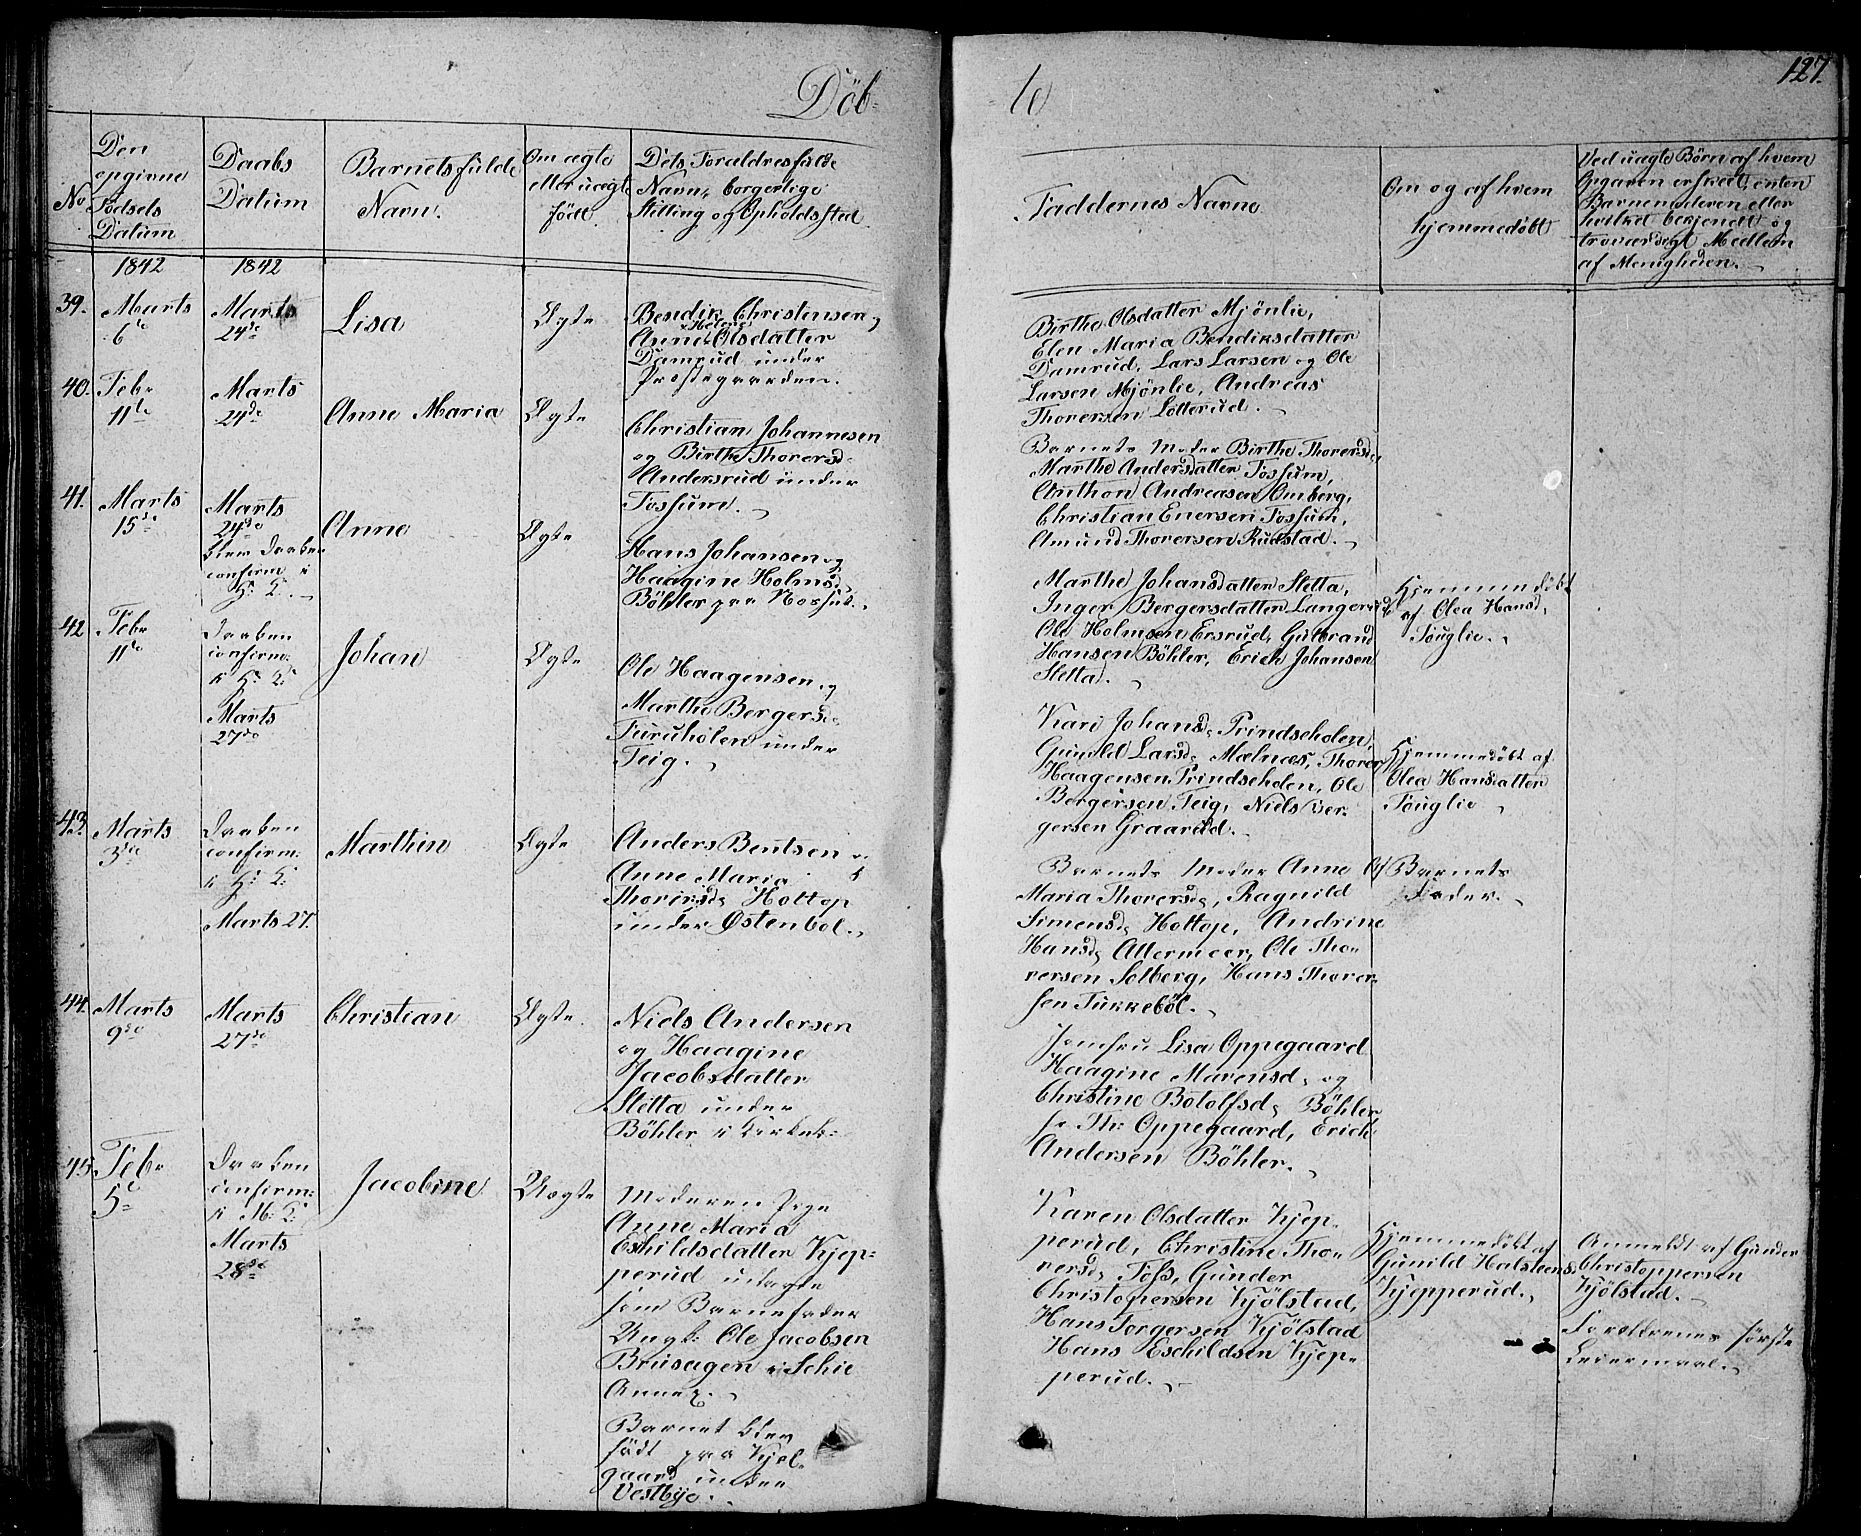 Döb-
No
Den
opgivne
Födsels
Datum
Daabs
Datum
Barnets fulde
Navn.
Om ægte
eller uægte
födt
Dets Forældres fulde
Navn, borgerlige
Stilling og Opholdssted
1842
1842
39.
Marts
6te
Marts
24de
Lisa
Ægte
Bendik Christensen og
Helene
Anne Olsdatter
Damrud under
Prestegaarden.
40.
Febr
11te
Marts
24de
Anne Maria
Ægte
Christian Johannesen
og Birthe Thorersd.
Andersrud under
Fossum.
41.
Marts
15de
Marts
24de
blev Daaben
confirm i
H: K.
Anne
Ægte
Hans Johansen og
Haagine Holmsd.
Böhler paa
42
Febr
11te
Daaben
confirm:
i H: K:
Marts
27de
Johan
Ægte
Ole Haagensen og
Marthe Bergersd.
Furuholen under
Teig.
43.
Marts
3die
Daaben
confirm:
i H: K:
Marts 27.
Marthin
Ægte
Anders Bentsen og
Anne Maria
Thorersd. Hottop
under Østenbøl.
44.
Marts
9de
Marts
27de
Christian
Ægte.
Niels Andersen
og Haagine
Jacobsdatter
Sletta under
Böhler i Kirkeb:
45.
Febr
5te
Daaben
confirm:
i M: K:
Marts
28de
Jacobine
Uægte
Moderen Pige
Anne Maria
Eskildsdatter Kjep-
perud udlagte
som Barnefader
Ungk: Ole Jacobsen
Brusagen i Schie
Annex.
Barnet blev
födt paa Kjel-
gaard under
Vestbye.
-te
127.
Faddernes Navne
Om og af hvem
hjemmedöbt
Ved uægte Børn af hvem
Opgaven er skeet, enten
Barnemoderen eller
hvilket bekjendt og
troværdigt Medlem
af Menigheden.
Birthe Olsdatter Mjönlie,
Elen Maria Bendiksdatter
Damrud, Lars Larsen og Ole
Larsen Mjönlie, Andreas
Thorersen Lotterud.
Barnets Moder Birthe Thorersd.,
Marthe Andersdatter Fossum,
Anthon Andreasen Omberg,
Christian Enersen Fossum,
Amund Thorersen Rudstad.
Marthe Johansdatter Sletta,
Inger Bergersdatter Langerud
Ole Holmsen Ersrud, Gulbrand
Hansen Böhler, Erich Johansen
Sletta.
Hjemmedöbt
af Olea Hansd.
Fouglie.
Kari Johansd. Prindseholen,
Gunild Larsd. Mælnæs, Thorer
Haagensen Prindseholen, Ole
Bergersen Teig, Niels Ber-
gersen Graarud.
Hjemmedöbt af
Olea Hansdatter
Fouglie
Barnets Moder Anne
Maria Thorersd., Ragnild
Simensd. Hottop, Andrine
Hansd. Attermeer, Ole Tho-
rersen Solberg, Hans Thorer-
sen Tukkeböl.
Af Barnets
Fader.
Jomfru Lisa Oppegaard
Haagine Marensd. og
Christine Botolfsd. Böhler
Hr Th: Oppegaard, Erich
Andersen Böhler.
Karen Olsdatter Kjep-
perud, Christine Tho-
rersd. Foss, Gunder
Christopersen Kjölstad,
Hans Torgersen Kjölstad
Hans Eschildsen Kjep-
perud.
Hjemmedöbt af
Gunild Halsteens.
Kjepperud.
Anmeldt af Gunder
Christoppersen
Kjölstad.
Forældrenes første
Leiermaal.